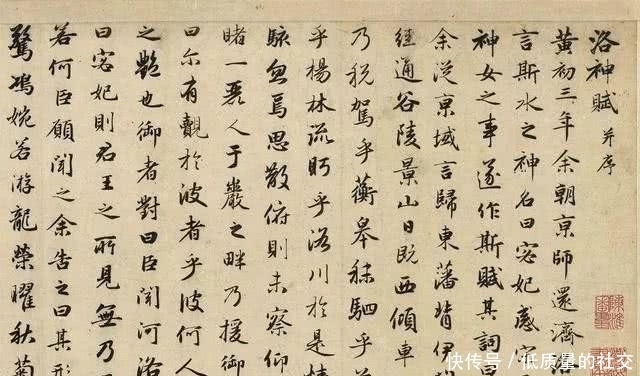 洛神賦 并序
黃初三年余朝京師還濟
言斯水之神名曰宓妃感宋
神女之事遂作斯賦其詞曰
余從京域言歸東藩背伊
經通谷陵景山日既西傾車
乃稅駕乎蘅皋秣駟乎
乎楊林流眄乎洛川於是精
駭忽焉思散俯則未察仰
睹一麗人于巖之畔乃援御
曰爾有覿於彼者乎彼何人
之艷也御者對曰臣聞河洛
曰宓妃則君王之所見無乃
若何臣願聞之余告之曰其形
驚鴻婉若游龍榮曜秋菊
快传号／低质量的社交